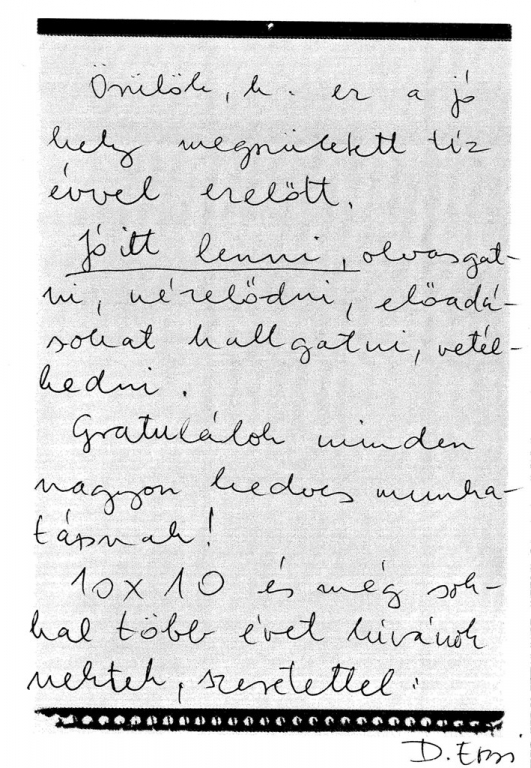 Örülök, h. ez a jó
hely megszületett tíz
évvel ezelőtt.
Jó itt lenni, olvasgat-
ni, nézelődni, előadá-
sokat hallgatni, vetél-
kedni.
Gratulálok minden
nagyon kedves munka-
társnak!
10x10 és még sok-
kal több évet kívánok
nektek, szeretettel:
D. Erzsi